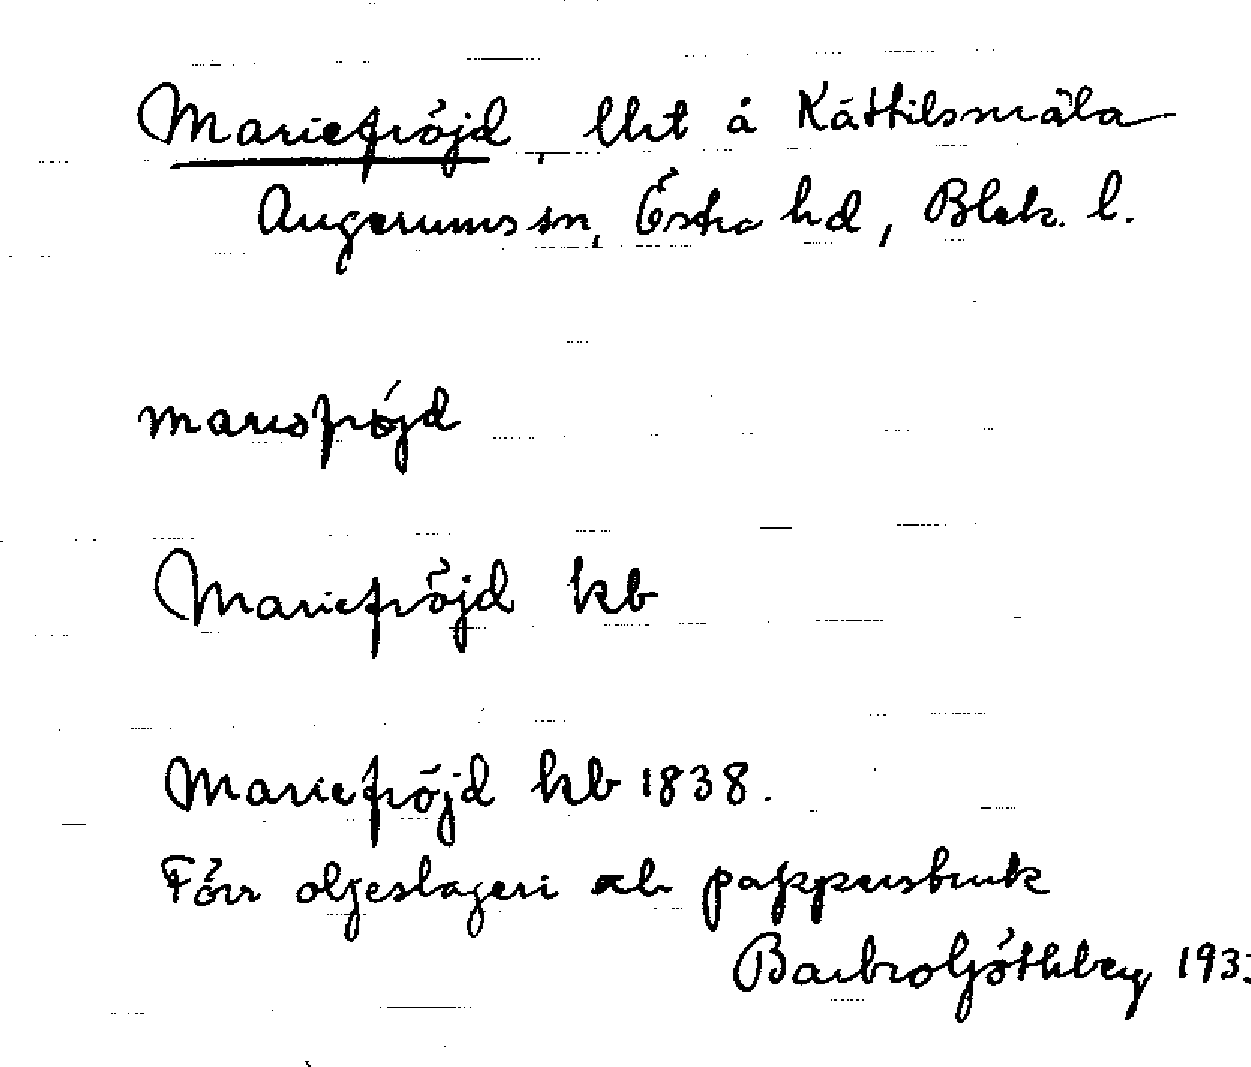 Mariefröjd, lht å Kättilsmåla
Augerums sn, Östra hd, Blek. l.
mariefröjd
Mariefröjd kb
Mariefröjd kb 1838.
Förr oljeslageri och pappersbruk
Barbro Göthberg 193